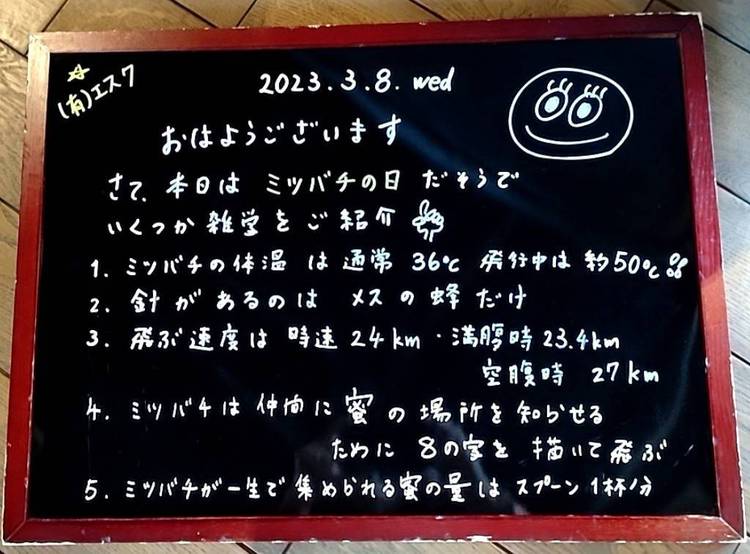 (有)エスク
2023.3.8. wed
おはようございます
さて、本日は ミツバチの日 だそうで
いくつか雑学をご紹介
1. ミツバチの体温 は 通常 36℃ 飛行中は 約50℃!!
2. 針があるのは メスの蜂だけ
3. 飛ぶ速度は 時速 24km・満腹時 23.4km
空腹時 27km
4. ミツバチは 仲間に 蜜の場所を知らせる
ために 8の字を 描いて飛ぶ
5. ミツバチが一生で集められる蜜の量は スプーン1杯分